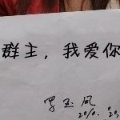 群主,我爱你
罗玉凤